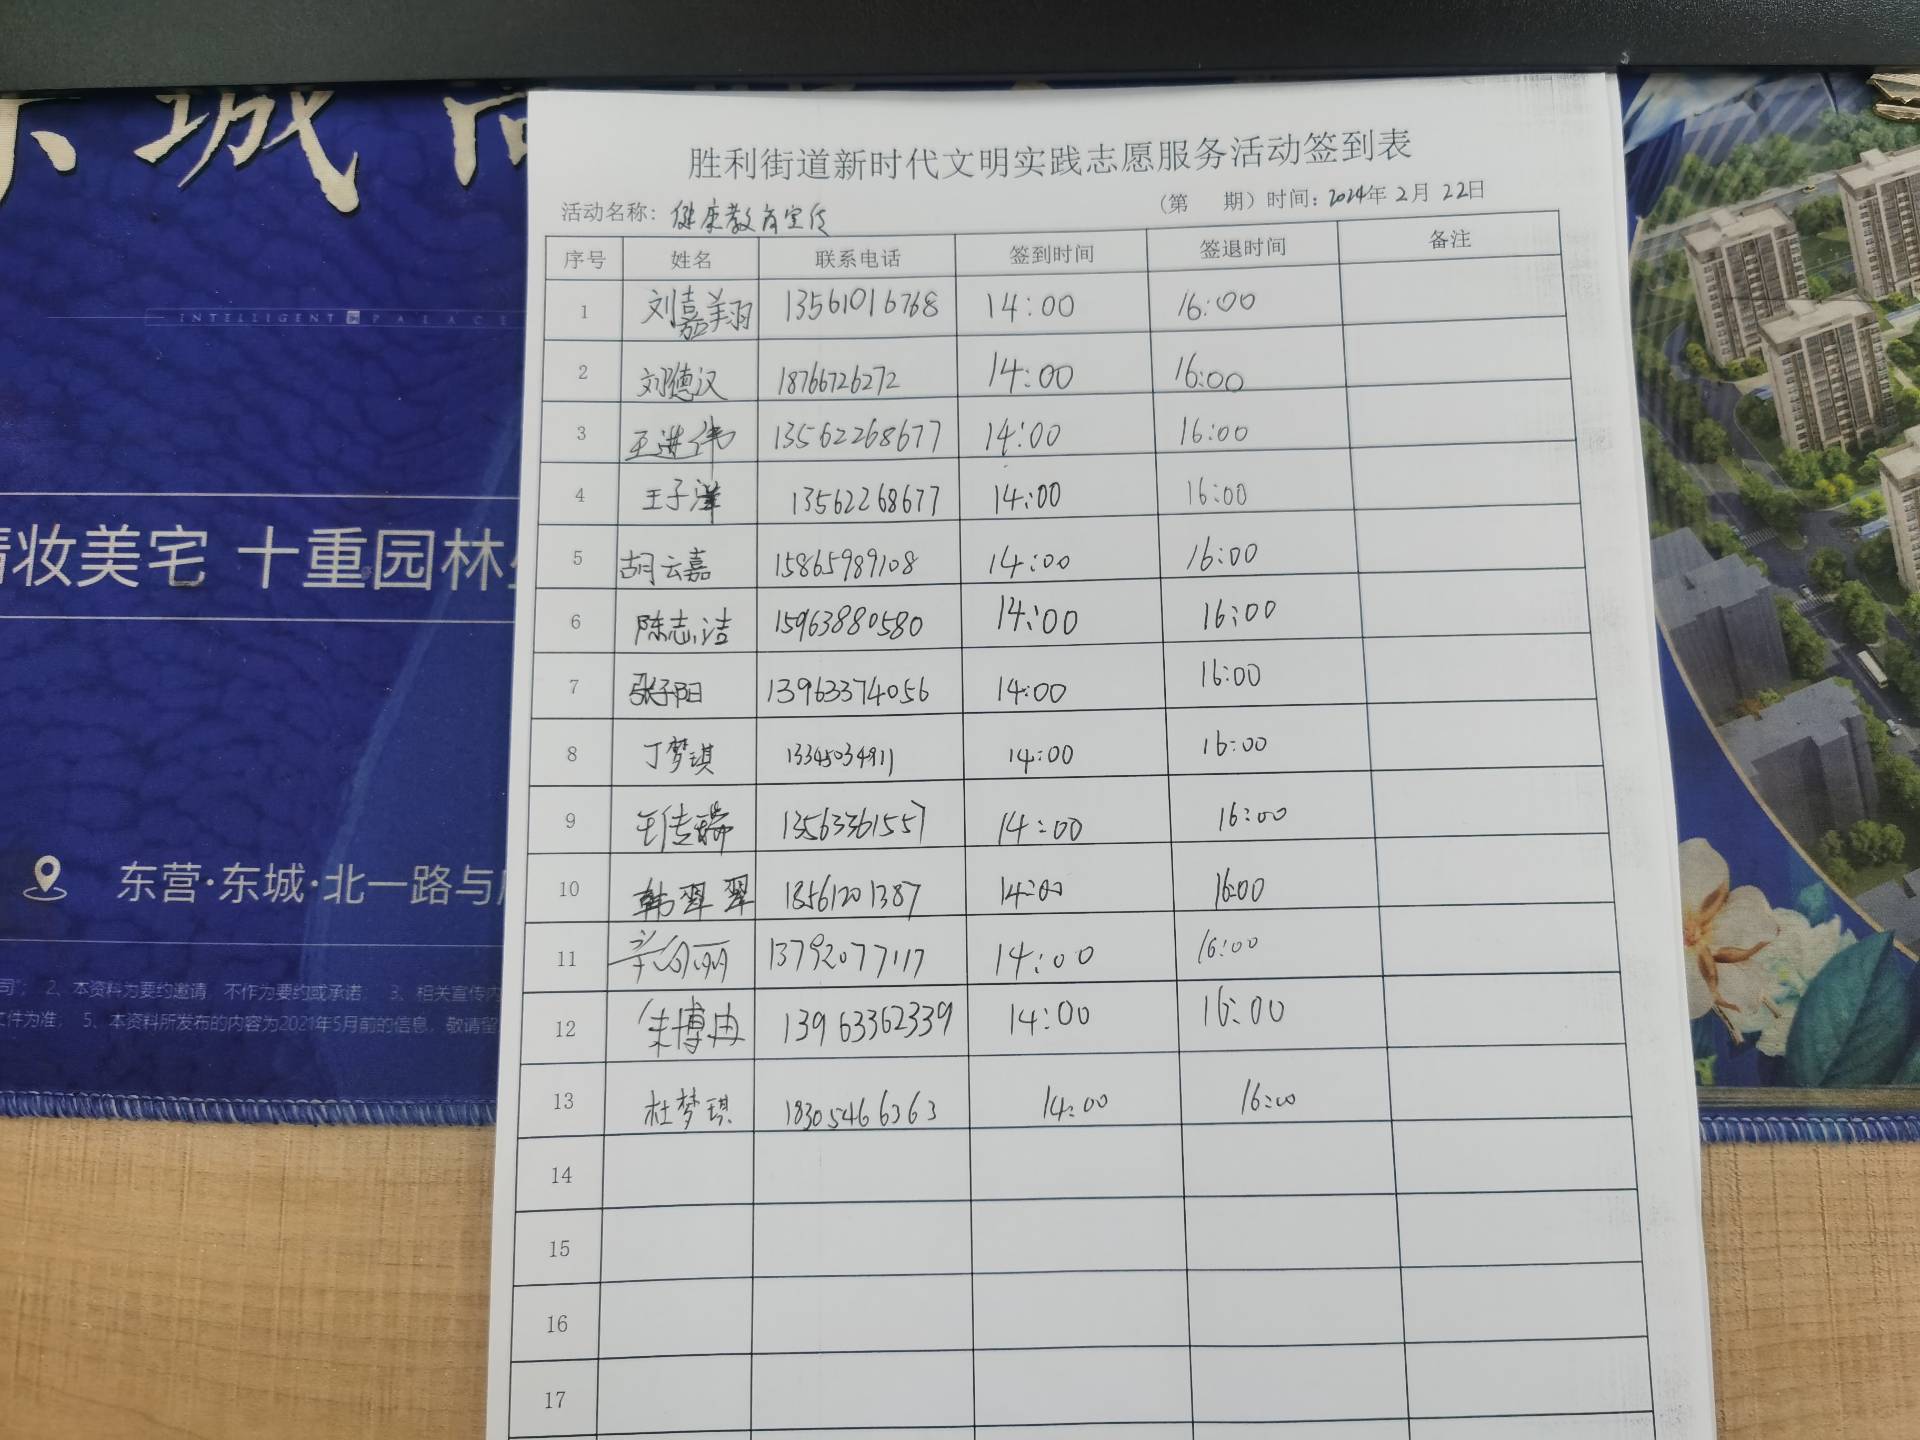 东城
INTELLIGENT PALACE
精妆美宅 十重园林
东营·东城·北一路与
2、本资料为要约邀请,不作为要约或承诺; 3、相关宣传内
文件为准; 5、本资料所发布的内容为2021年5月前的信息,敬请留
胜利街道新时代文明实践志愿服务活动签到表
活动名称:健康教育宣传 (第 期)时间:2024年2月22日
序号 姓名 联系电话 签到时间 签退时间 备注
1 刘嘉美羽 13561016768 14:00 16:00
2 刘德汉 18766726272 14:00 16:00
3 王进伟 13562268677 14:00 16:00
4 王子洋 13562268677 14:00 16:00
5 胡云嘉 15865989108 14:00 16:00
6 陈志洁 15963880580 14:00 16:00
7 张子阳 13963374056 14:00 16:00
8 丁梦琪 13345034911 14:00 16:00
9 王传瑞 13563361557 14:00 16:00
10 韩翠翠 18561201387 14:00 16:00
11 13792077117 14:00 16:00
12 朱博冉 13963362339 14:00 16:00
13 杜梦琪 18305466363 14:00 16:00
14
15
16
17